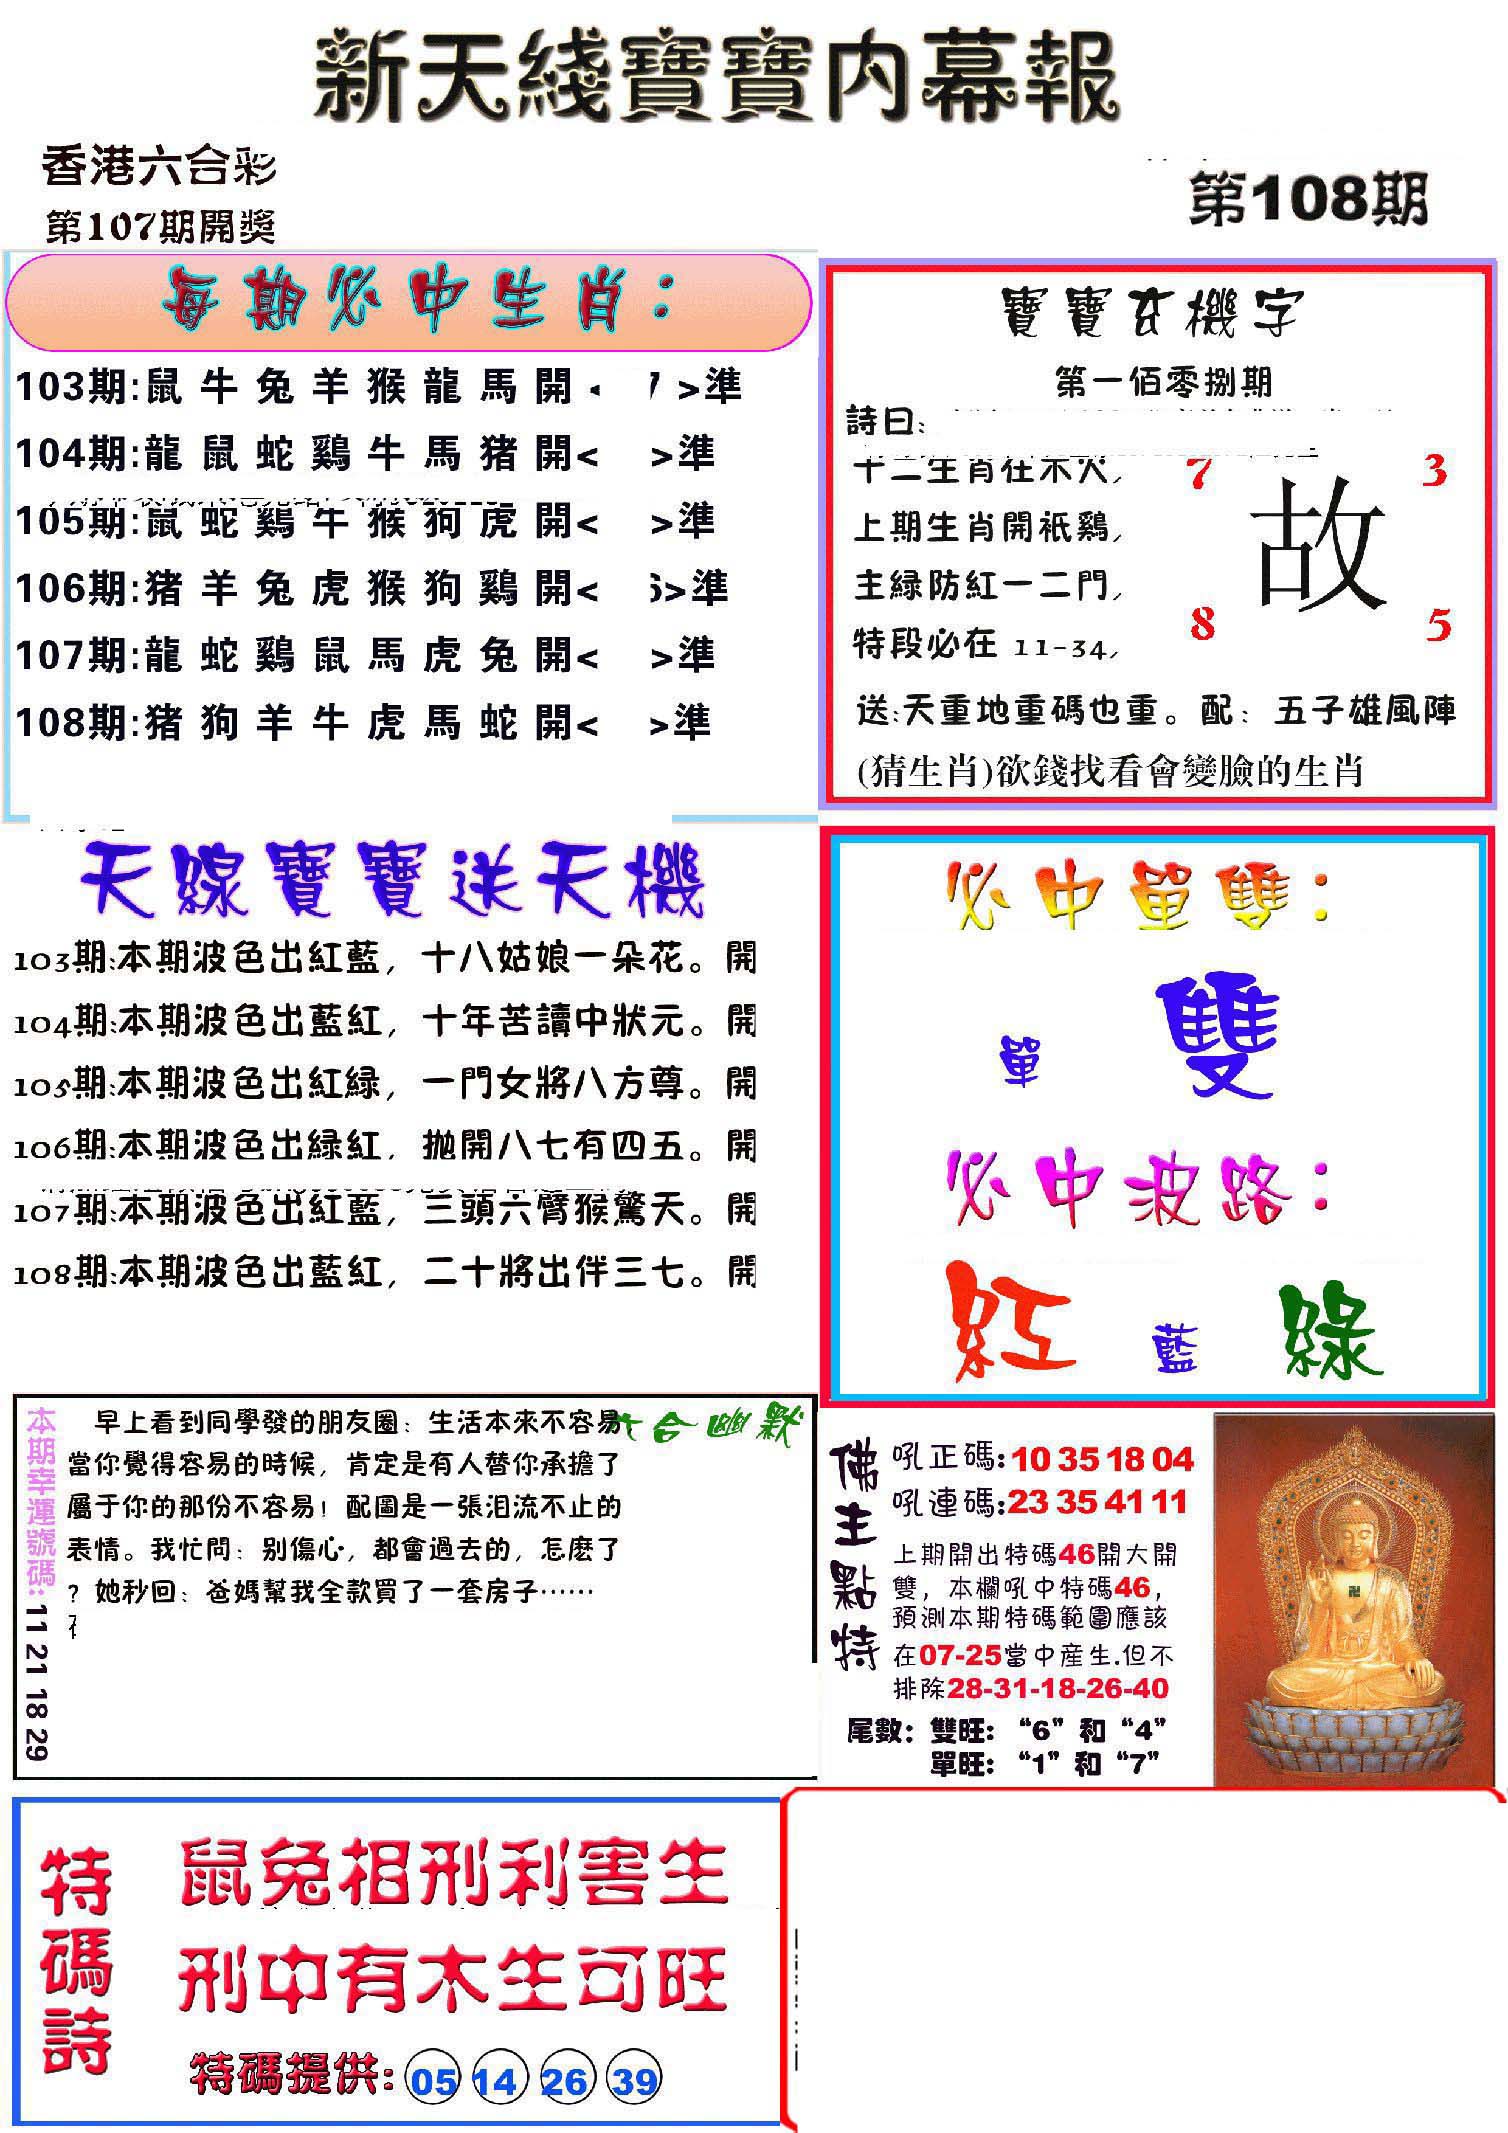 新天綫寶寶内幕報
香港六合彩
第107期開獎
第108期
每期必中生肖：
103期:鼠 牛 兔 羊 猴 龍 馬 開 < 7 >準
104期:龍 鼠 蛇 鷄 牛 馬 猪 開< >準
105期:鼠 蛇 鷄 牛 猴 狗 虎 開< >準
106期:猪 羊 兔 虎 猴 狗 鷄 開< >準
107期:龍 蛇 鷄 鼠 馬 虎 兔 開< >準
108期:猪 狗 羊 牛 虎 馬 蛇 開< >準
寶寶玄機字
第一佰零捌期
詩曰:
十二生肖在木火,
上期生肖開祇鷄,
主緑防紅一二門,
特段必在 11-34,
7 3
故
8 5
送:天重地重碼也重。配: 五子雄風陣
(猜生肖)欲錢找看會變臉的生肖
天線寶寶送天機
103期:本期波色出紅藍, 十八姑娘一朵花。開
104期:本期波色出藍紅, 十年苦讀中狀元。開
105期:本期波色出紅緑, 一門女將八方尊。開
106期:本期波色出緑紅, 拋開八七有四五。開
107期:本期波色出紅藍, 三頭六臂猴驚天。開
108期:本期波色出藍紅, 二十將出伴三七。開
必中單雙：
單 雙
必中波路：
紅 藍 綠
本期幸運號碼:11 21 18 29
六合幽默
早上看到同學發的朋友圈: 生活本來不容易
當你覺得容易的時候, 肯定是有人替你承擔了
屬于你的那份不容易! 配圖是一張泪流不止的
表情。我忙問: 别傷心, 都會過去的, 怎麽了
? 她秒回: 爸媽幫我全款買了一套房子……
佛主點特
吼正碼:10 35 18 04
吼連碼:23 35 41 11
上期開出特碼46開大開
雙, 本欄吼中特碼46,
預測本期特碼範圍應該
在07-25當中産生.但不
排除28-31-18-26-40
尾數: 雙旺: “6”和“4”
單旺: “1”和“7”
特碼詩
鼠兔相刑利害生
刑中有木生可旺
特碼提供: 05 14 26 39